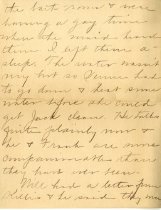 the bath room & were
having a gay time
when the maid heard
them I left them a
sleep. The water wasn't
very hot so Jennie had
to go down & heat some
water before she could
get Jack clean. He talks
quite plainly now &
he & Frank are more
companionable than
they have ever been.
Will had a letter from
& he said they